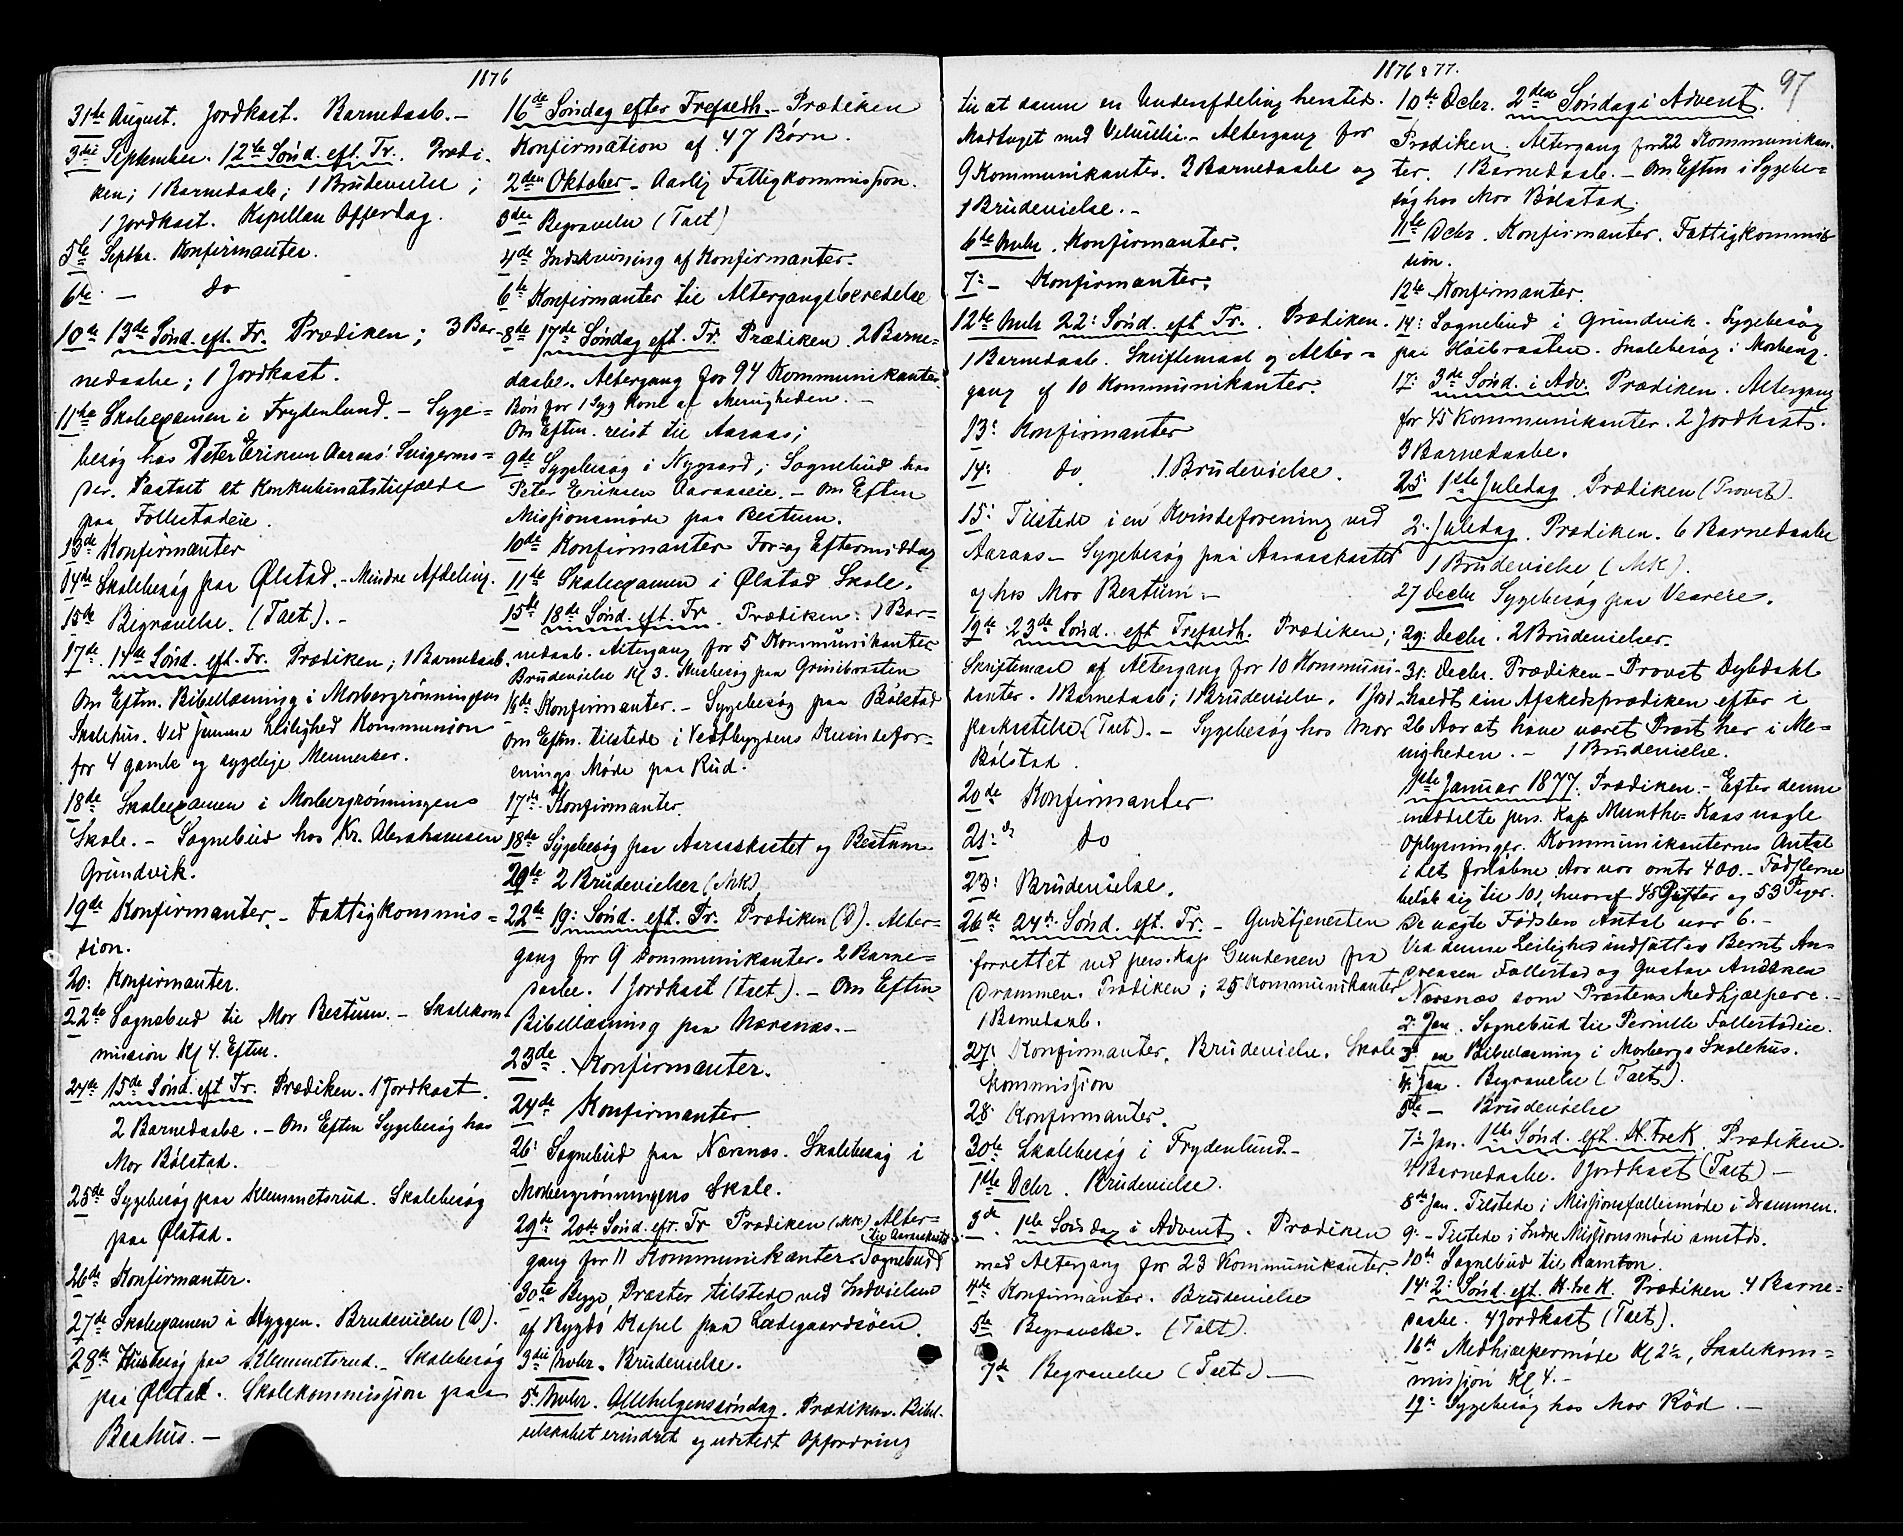 1876
31te August. Jordkast. Barnedaab. –
3die September. 12te Sønd. eft. Tr. Prædi-
ken; 1 Barnedaab; 1 Brudevielse;
1 Jordkast. Kapellan Offerdag.
5te Septbr. Konfirmanter.
6te – do
10de 13de Sønd. eft. Tr. Prædiken; 3 Bar-
nedaabe; 1 Jordkast.
11te Skoleexamen i Frydenlund. – Syge-
besøg hos Peter Eriksen Aaraas' Svigermo-
der. Paatalt et Konkubinatstilfælde
paa Follestadeie.
13de Konfirmanter
14de Skolebesøg paa Ølstad. – Mindre Afdeling.
15de Begravelse. (Taet). –
17de 14de Sønd. eft. Tr. Prædiken; 1 Barnedaab.
Om Eftm. Bibellæsning i Morbergrønningens
Skolehus. Ved samme Leilighed Kommunion
for 4 gamle og sygelige Mennesker.
18de Skoleexamen i Morbergrønningens
Skole. – Sognebud hos Kr. Abrahamsen
Grundvik.
19de Konfirmanter – Fattigkommis-
sion.
20: Konfirmanter.
22de Sognebud til Mor Bestum. – Skolekom-
mission Kl 4. Eftm.
24de 15de Sønd. eft Tr. Prædiken. 1 Jordkast.
2 Barnedaabe. – Om Eftm Sygebesøg hos
Mor Bølstad.
25de Sygebesøg paa Klemmetsrud. Skolebesøg
paa Ølstad.
26de Konfirmanter.
27de Skoleexamen i Hyggen. Brudevielse (D).
28de Husbesøg paa Klemmetsrud. – Skolebesøg
paa Ølstad. Skolekommission paa
Baahus. –
16de Søndag efter Trefoldh. – Prædiken
Konfirmation af 47 Børn.
2den Oktober – Aarlig Fattigkommission.
3die Begravelse (Taet)
4de Indskrivning af Konfirmanter.
6te Konfirmanter til Altergangsberedelse
8de 17de Søndag eft. Tr. Prædiken. 2 Barne-
daabe. Altergang for 94 Kommunikanter.
Bøn for 1 Syg Kone af Menigheden. –
Om Eftm. reist til Aaraas;
9de Sygebesøg i Nygaard; Sognebud hos
Peter Eriksen Aaraaseie. – Om Eftm
Missionsmøde paa Bestum.
10de Konfirmanter For- og Eftermiddag
11te Skoleexamen i Ølstad Skole.
15de 18de Sønd. eft. Tr. Prædiken: 1 Bar-
nedaab. Altergang for 5 Kommunikanter
Brudevielse Kl 3. Husbesøg paa Grinibraaten
16de Konfirmanter. – Sygebesøg paa Bølstad
Om Eftm. tilstede i Vestbygdens Kvindefor-
enings Møde paa Rud.
17de Konfirmanter.
18de Sygebesøg paa Aaraaskastet og Bestum
20de 2 Brudevielser (MK)
22de 19: Sønd. eft. Tr. Prædiken (D). Alter-
gang for 9 Kommunikanter. 2 Barne-
daabe. 1 Jordkast (Taet). – Om Eftm
Bibellæsning paa Nærsnæs. –
23de Konfirmanter.
24de Konfirmanter
26: Sognebud paa Nærsnæs. Skolebesøg i
Morbergrønningens Skole.
29de 20de Sønd. eft. Tr Prædiken (MK) Alter-
til Aaraaskastet
gang for 11 Kommunikanter. Sognebud
30te Begge Præster tilstede ved Indvielsen
af Bygdø Kapel paa Ladegaardsøen.
3die Nvbr. Brudevielse.
5: Nvbr. Allehelgenssøndag. Prædiken. Bibel-
selskabet erindret og udstedt Opfordring
1876 & 77.
97
til at danne en Underafdeling hersteds.
Modtaget med Velvilie. – Altergang for
9 Kommunikanter. 3 Barnedaabe og
1 Brudevielse. –
6te Nvbr. Konfirmanter.
7: – Konfirmanter.
12te Nvbr 22: Sønd. eft Tr. Prædiken.
1 Barnedaab. Skriftemaal og Alter-
gang af 10 Kommunikanter.
13: Konfirmanter
14: do 1 Brudevielse.
15: Tilstede i en Kvindeforening ved
Aaraas – Sygebesøg paa Aaraaskastet
og hos Mor Bestum –
19de 23de Sønd. eft Trefoldh. Prædiken;
Skriftemaal og Altergang for 10 Kommuni-
kanter. 1 Barnedaab; 1 Brudevielse. 1 Jord-
paakastelse (Taet). – Sygebesøg hos Mor
Bølstad.
20de Konfirmanter
21: do
23: Brudevielse.
26de 24de Sønd. eft. Tr. – Gudstjenesten
forrettet ved pers. Kap. Gundersen fra
Drammen. Prædiken; 25 Kommunikanter
1 Barnedaab.
27: Konfirmanter. Brudevielse. Skole
Kommission
28: Konfirmanter.
30te Skolebesøg i Frydenlund. –
1ste Dcbr. Brudevielse.
3de 1ste Søndag i Advent. Prædiken
med Altergang for 23 Kommunikanter.
4de Konfirmanter. Brudevielse
5te Begravelse. (Taet).
7de Begravelse (Taet). –
10de Dcbr. 2den Søndag i Advent.
Prædiken. Altergang for 22 Kommunikan-
ter. 1 Barnedaab. – Om Eftm i Sygebe-
søg hos Mor Bølstad.
11te Dcbr. Konfirmanter. Fattigkommis-
sion.
12te Konfirmanter.
14: Sognebud i Grundvik. Sygebesøg
paa Høibraaten. Skolebesøg i Morberg.
17: 3de Sønd. i Adv. Prædiken. Altergang
for 45 Kommunikanter. 2 Jordkast.
3 Barnedaabe.
25: 1ste Juledag. Prædiken (Provst).
2: Juledag. Prædiken. 6 Barnedaabe
1 Brudevielse (MK).
27 Decbr Sygebesøg paa Vearere.
29: Decbr. 2 Brudevielser.
31: Decbr. Prædiken – Provst Dybdahl
holdt sin Afskedsprædiken efter i
26 Aar at have været Præst her i Me-
nigheden. – 1 Brudevielse.
1ste Januar 1877. Prædiken. – Efter denne
meddelte pers. Kap Munthe-Kaas nogle
Oplysninger. Kommunikanternes Antal
i det forløbne Aar var omtr 400. – Fødslerne
beløb sig til 101, hvoraf 48 Gutter og 53 Piger.
De uægte Fødslers Antal var 6. –
Ved denne Leilighed indsattes Bernt An-
dreasen Follestad og Gustav Andersen
Nærsnæs som Præstens Medhjælpere. –
2: Jan. Sognebud til Pernille Follestadeie.
3: en Bibellæsning i Morbergs Skolehus.
4: Jan. Begravelse (Taet).
5te – Brudevielse
7: Jan. 1ste Sønd. eft. H. tre K. Prædiken.
4 Barnedaabe. 1 Jordkast (Taet) –
8de Jan. Tilstede i Missionsfællesmøde i Drammen.
9: – Tilstede i Indre Missionsmøde smstds.
10de Sognebud til Ramton.
14: 2: Sønd. eft. H. tre K. Prædiken. 4 Barne-
daabe. 4 Jordkast (Taet).
16de Medhjælpermøde Kl 2½, Skolekom-
mission Kl 4. –
19: Sygebesøg hos Mor Rød. –